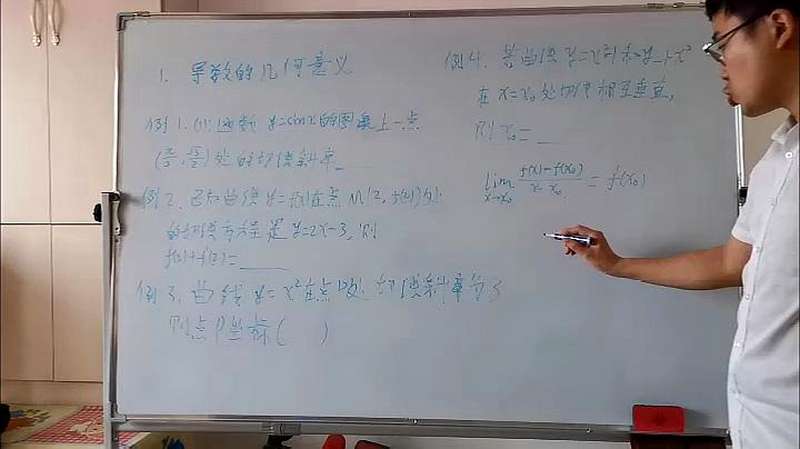 1. 导数的几何意义
例1.(1)函数 y=sinx的图象上一点
(π/3, √3/2)处的切线斜率_
例2. 已知曲线y=f(x)在点M(2, f(2))处
的切线方程是y=2x-3,则
f(2)+f'(2)=____
例3. 曲线y=x²在点P处切线斜率为
则点P坐标( )
例4. 若曲线y=x²-1和y=1-x³
在x=x₀处切线相互垂直,
则x₀=___
lim x→x₀ (f(x)-f(x₀))/(x-x₀) = f'(x₀)